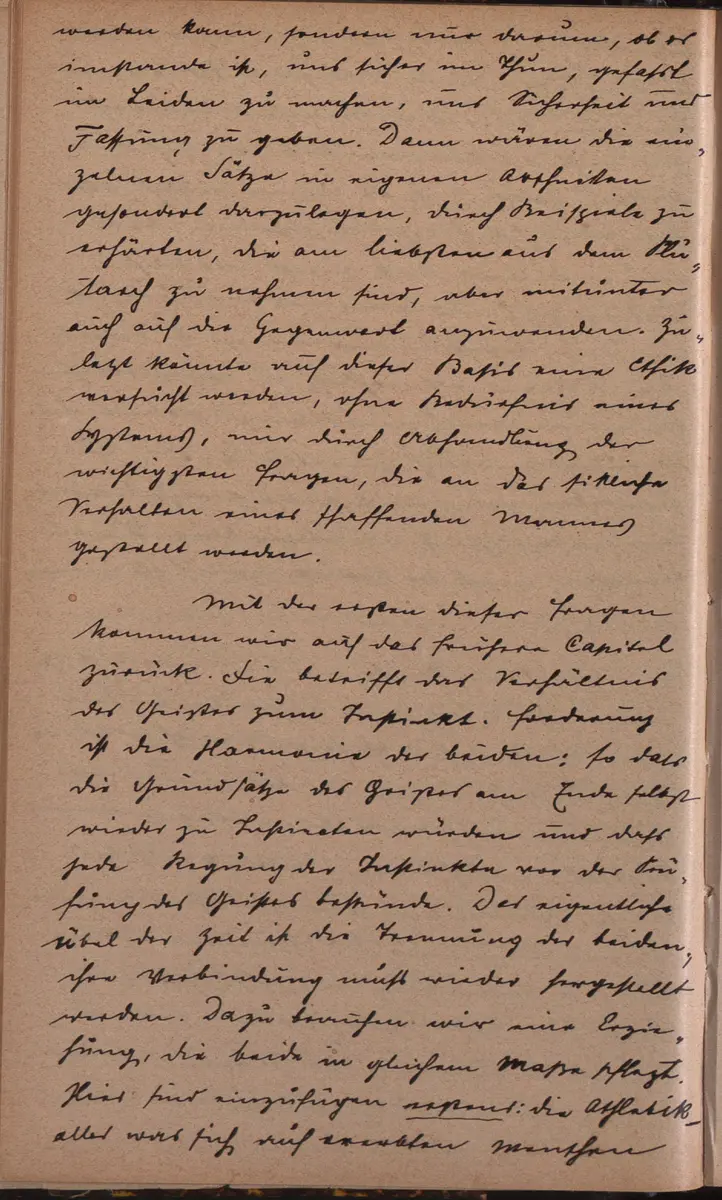 werden kann, sondern nur darum, ob es
imstande ist, uns sicher im Thun, gefasst
im Leiden zu machen, uns Sicherheit und
Fassung zu geben. Dann wären die ein„
zelnen Sätze in eigenen Abschnitten
gesondert darzulegen, durch Beispiele zu
erhärten, die am liebsten aus dem Plu„
tarch zu nehmen sind, aber mitunter
auch auf die Gegenwart anzuwenden. Zu„
letzt könnte auf dieser Basis eine Ethik
versucht werden, ohne Bedürfnis eines
Systems, nur durch Abhandlung der
wichtigsten Fragen, die an das sittliche
Verhalten eines schaffenden Mannes
gestellt werden.
Mit der ersten dieser Fragen
kommen wir auf das frühere Capitel
zurück. Sie betrifft das Verhältnis
des Geistes zum Instinkt. Forderung
ist die Harmonie der beiden: so dass
die Grundsätze des Geistes am Ende selbst
wieder zu Instincten würden und dass
jede Regung der Instinkte vor der Prü„
fung des Geistes bestünde. Das eigentliche
Übel der Zeit ist die Trennung der beiden,
ihre Verbindung muss wieder hergestellt
werden. Dazu brauchen wir eine Erzie„
hung, die beide in gleichem Maße pflegt.
Hier sind einzufügen erstens: die Athletik
alles was sich auf ererbten